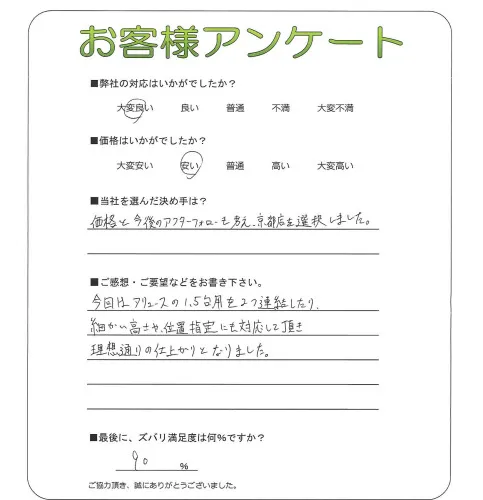 お客様アンケート
■弊社の対応はいかがでしたか？
大変良い 良い 普通 不満 大変不満
■価格はいかがでしたか？
大変安い 安い 普通 高い 大変高い
■当社を選んだ決め手は？
価格と今後のアフターフォローも考え、京都店を選択しました。
■ご感想・ご要望などをお書き下さい。
今回は アリュースの1.5台用を2つ連結したり、
細かい高さや、位置指定にも対応して頂き
理想通りの仕上がりとなりました。
■最後に、ズバリ満足度は何%ですか？
90 %
ご協力頂き、誠にありがとうございました。